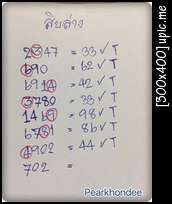 สิบล่าง
2347 = 33 ✓ T
690 = 62 ✓ T
6914 = 42 ✓ T
3780 = 38 ✓ T
1469 = 98 ✓ T
6751 = 86 ✓ T
4902 = 44 ✓ T
702 =
Pearkhondee
[300x400] upic.me